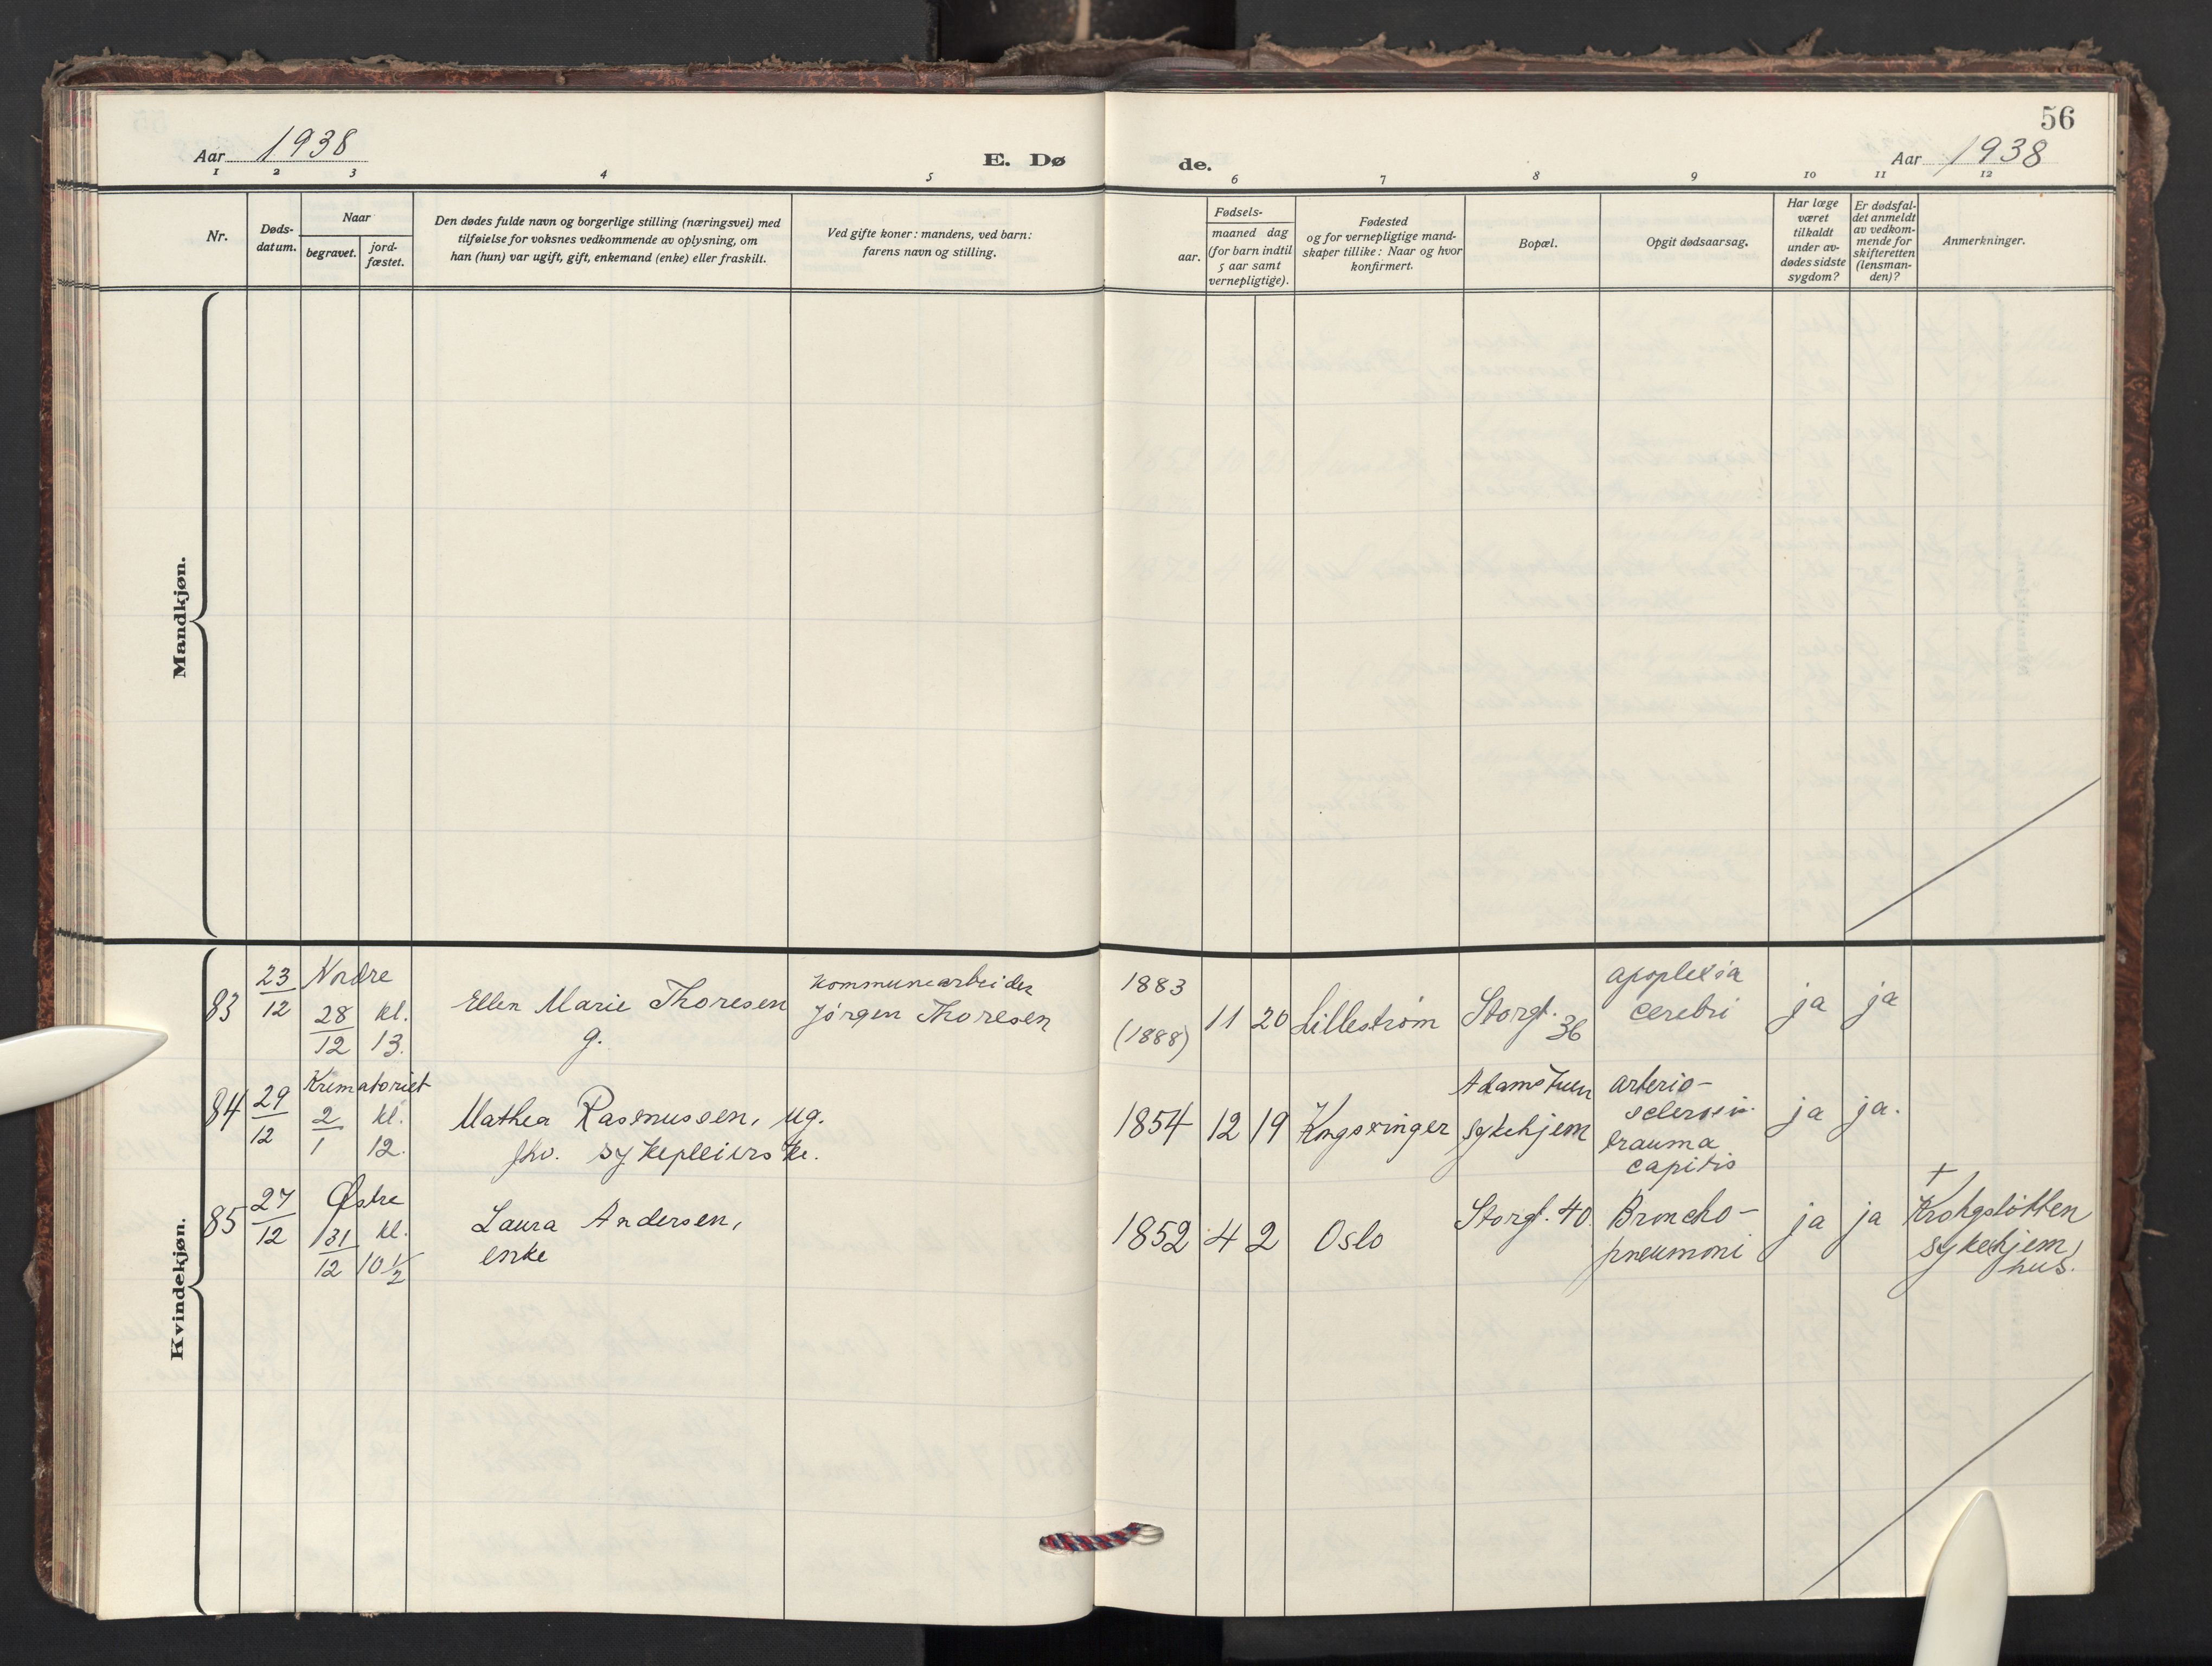 56
Aar 1938
E. Dø
de.
Aar 1938
1 2 3 4 5 6 7 8 9 10 11 12
Nr.
Døds-
datum.
Naar
begravet.
jord-
fæstet.
Den dødes fulde navn og borgerlige stilling (næringsvei) med
tilføielse for voksnes vedkommende av oplysning, om
han (hun) var ugift, gift, enkemand (enke) eller fraskilt.
Ved gifte koner: mandens, ved barn:
farens navn og stilling.
Fødsels-
aar.
maaned dag
(for barn indtil
5 aar samt
vernepligtige).
Fødested
og for vernepligtige mand-
skaper tillike: Naar og hvor
konfirmert.
Bopæl.
Opgit dødsaarsag.
Har læge
været
tilkaldt
under av-
dødes sidste
sygdom?
Er dødsfal-
det anmeldt
av vedkom-
mende for
skifteretten
(lensman-
den)?
Anmerkninger.
Mandkjøn.
Kvindekjøn.
83
23
12
Nordre
28
12
kl.
13.
Ellen Marie Thoresen
g.
kommunearbeider
Jørgen Thoresen
1883
(1888)
11 20
Lillestrøm
Storgt.
36
apoplexia
cerebri
ja ja
84
29
12
Krematoriet
2
1
kl.
12.
Mathea Rasmussen, ug.
fhv. sykepleierske.
1854 12 19
Kongsvinger
Adamstuen
sykehjem
arterio-
sclerosis.
trauma
capitis
ja ja.
85
27
12
Østre
31
12
kl.
10 ½
Laura Andersen,
enke
1852 4 2
Oslo
Storgt. 40
Broncho-
pneumoni
ja ja
†
Krohgstøtten
sykehjem
hus.